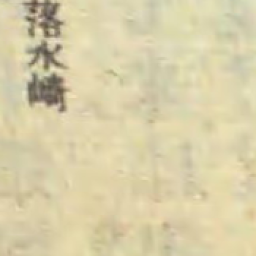 落水崎